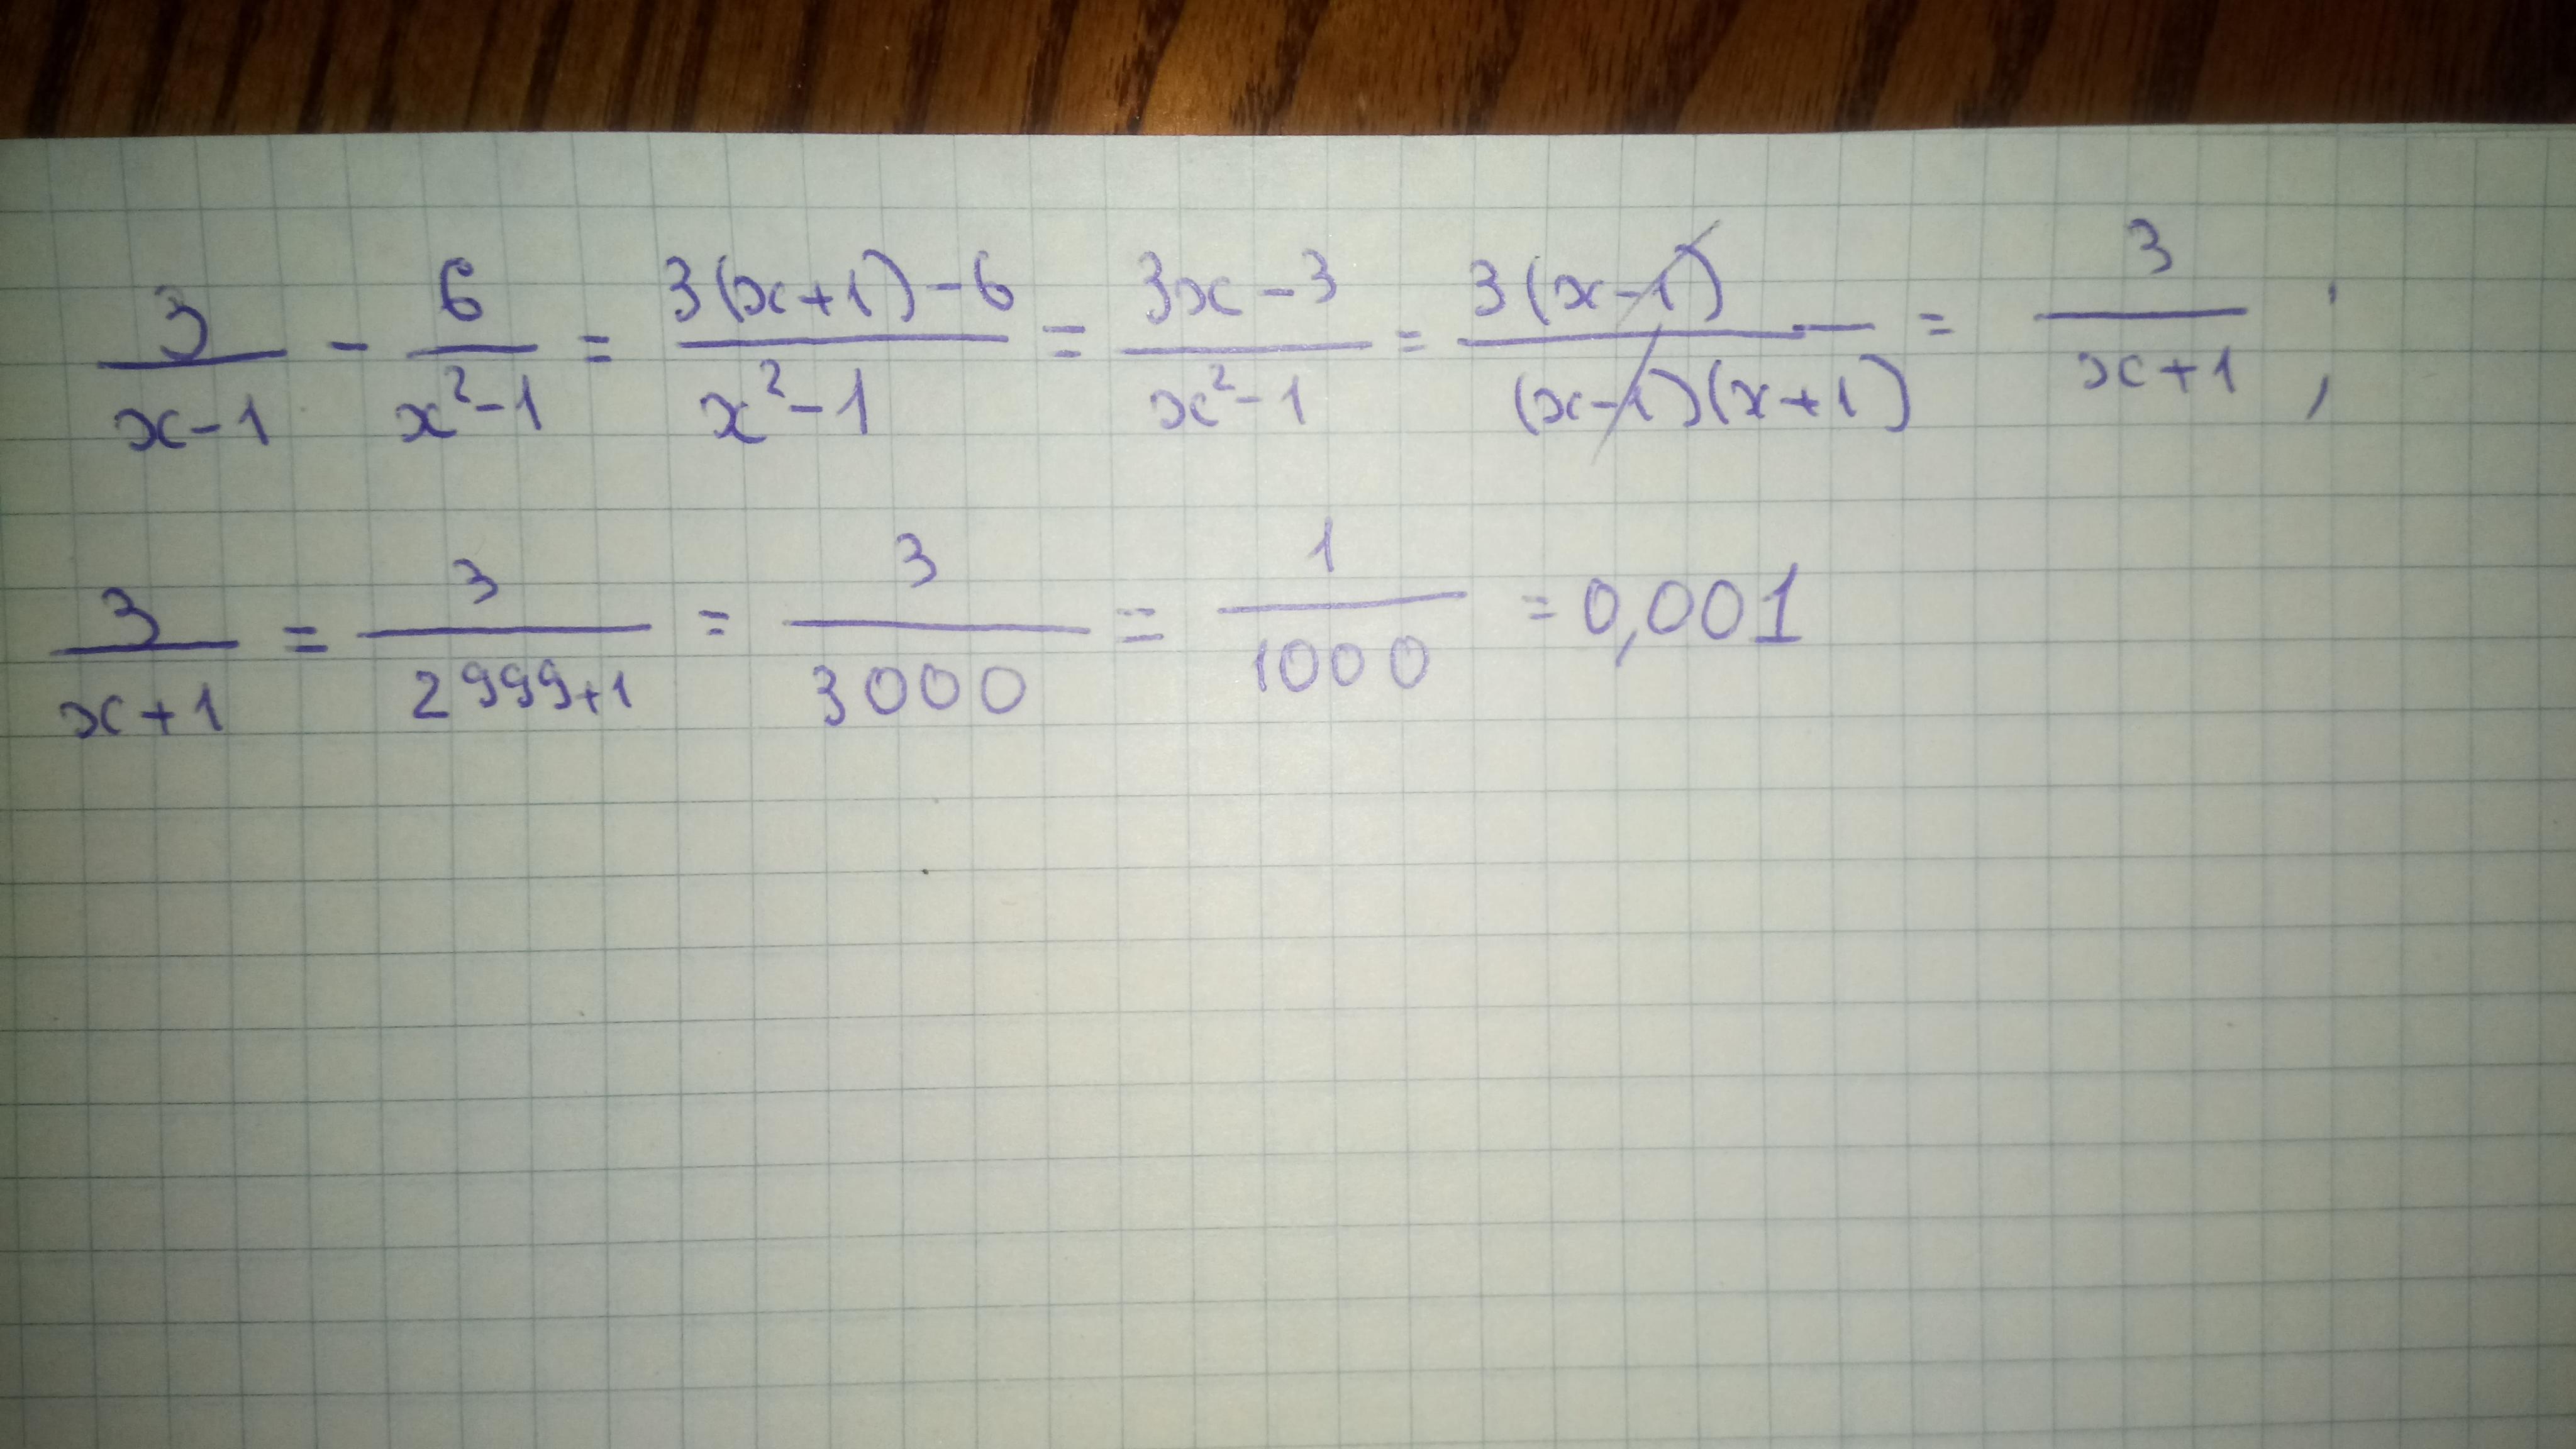 3/(x-1) - 6/(x²-1) = (3(x+1)-6)/(x²-1) = (3x-3)/(x²-1) = 3(x-1)/((x-1)(x+1)) = 3/(x+1) ;
3/(x+1) = 3/(2999+1) = 3/3000 = 1/1000 = 0,001